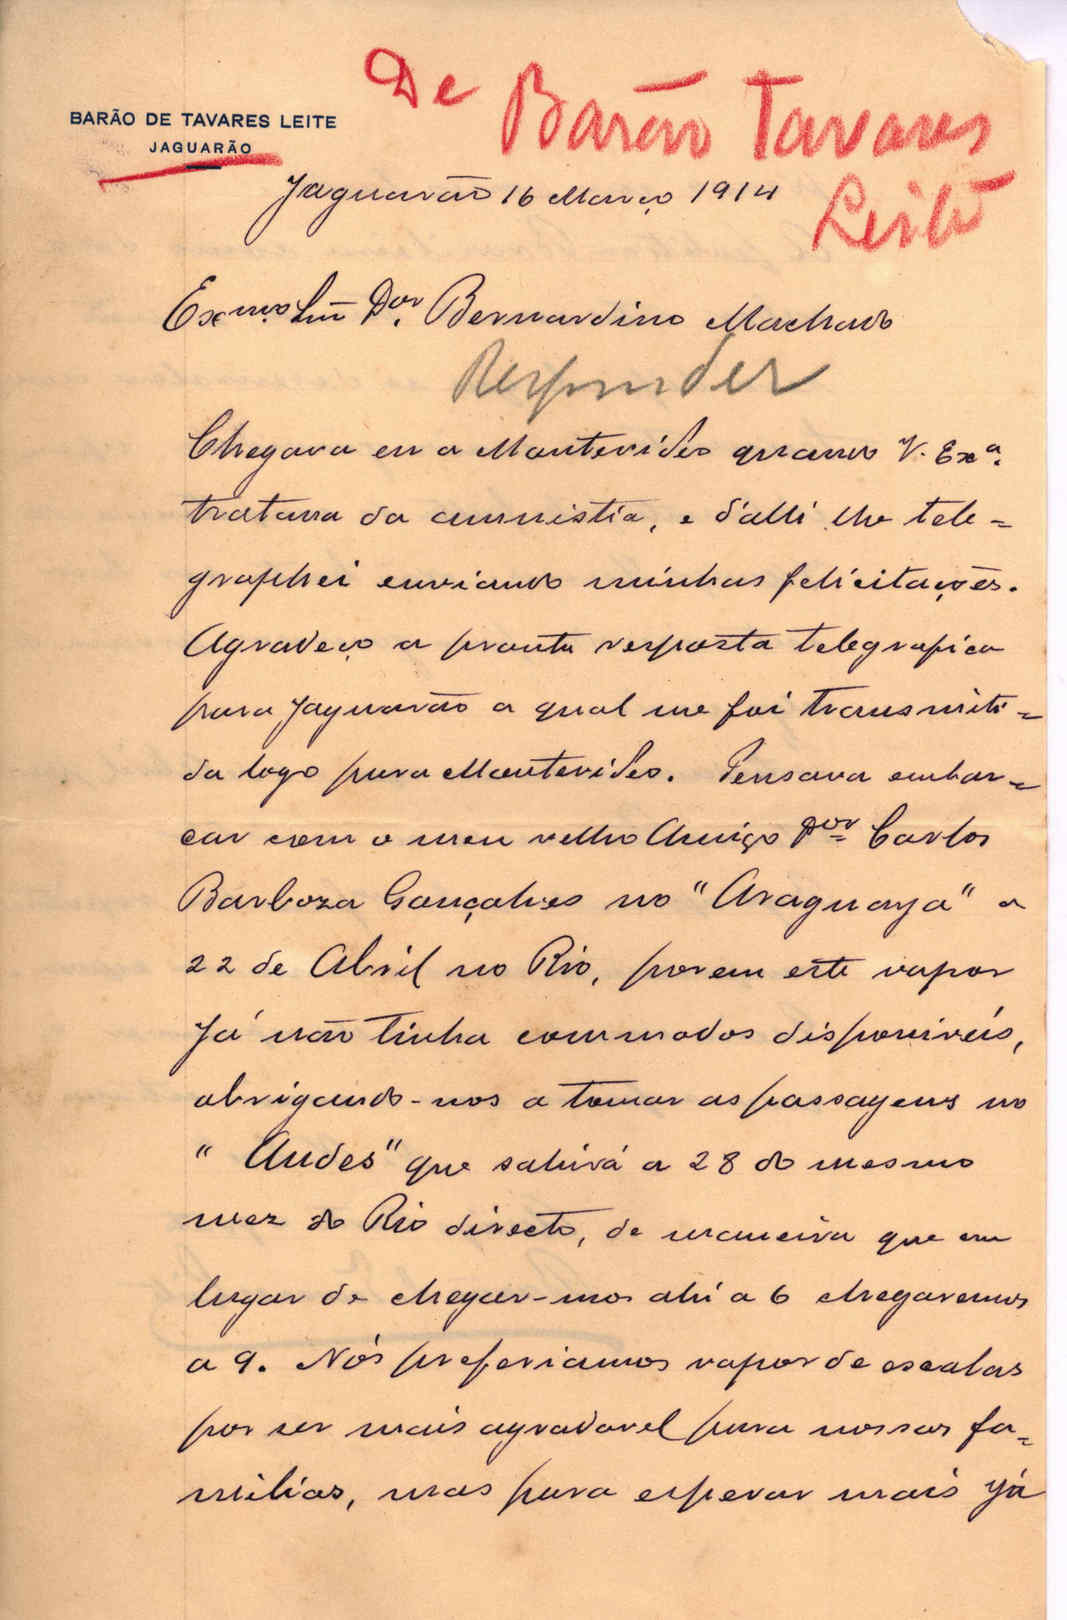 BARÃO DE TAVARES LEITE
JAGUARÃO
De Barão Tavares
Leite
Jaguarão 16 Março 1914
Exmo. Snr Dor. Bernardino Machado
Responder
Chegara eu a Montevideo quando V. Exa.
tratava da amnistia, e d'alli lhe tele-
graphei enviando minhas felicitações.
Agradeço a pronta resposta telegrafica
para Jaguarão a qual me foi transmiti-
da logo para Montevideo. Pensava embar-
car com o meu velho Amigo Dor Carlos
Barboza Gonçalves no "Araguaya" a
22 de Abril no Rio, porem este vapor
já não tinha commodos disponiveis,
obrigando-nos a tomar as passagens no
"Andes" que sahirá a 28 do mesmo
mez do Rio directo, de maneira que em
lugar de chegar-mos ahi a 6 chegaremos
a 9. Nós preferiamos vapor de escalas
por ser mais agradavel para nossas fa-
milias, mas para esperar mais já